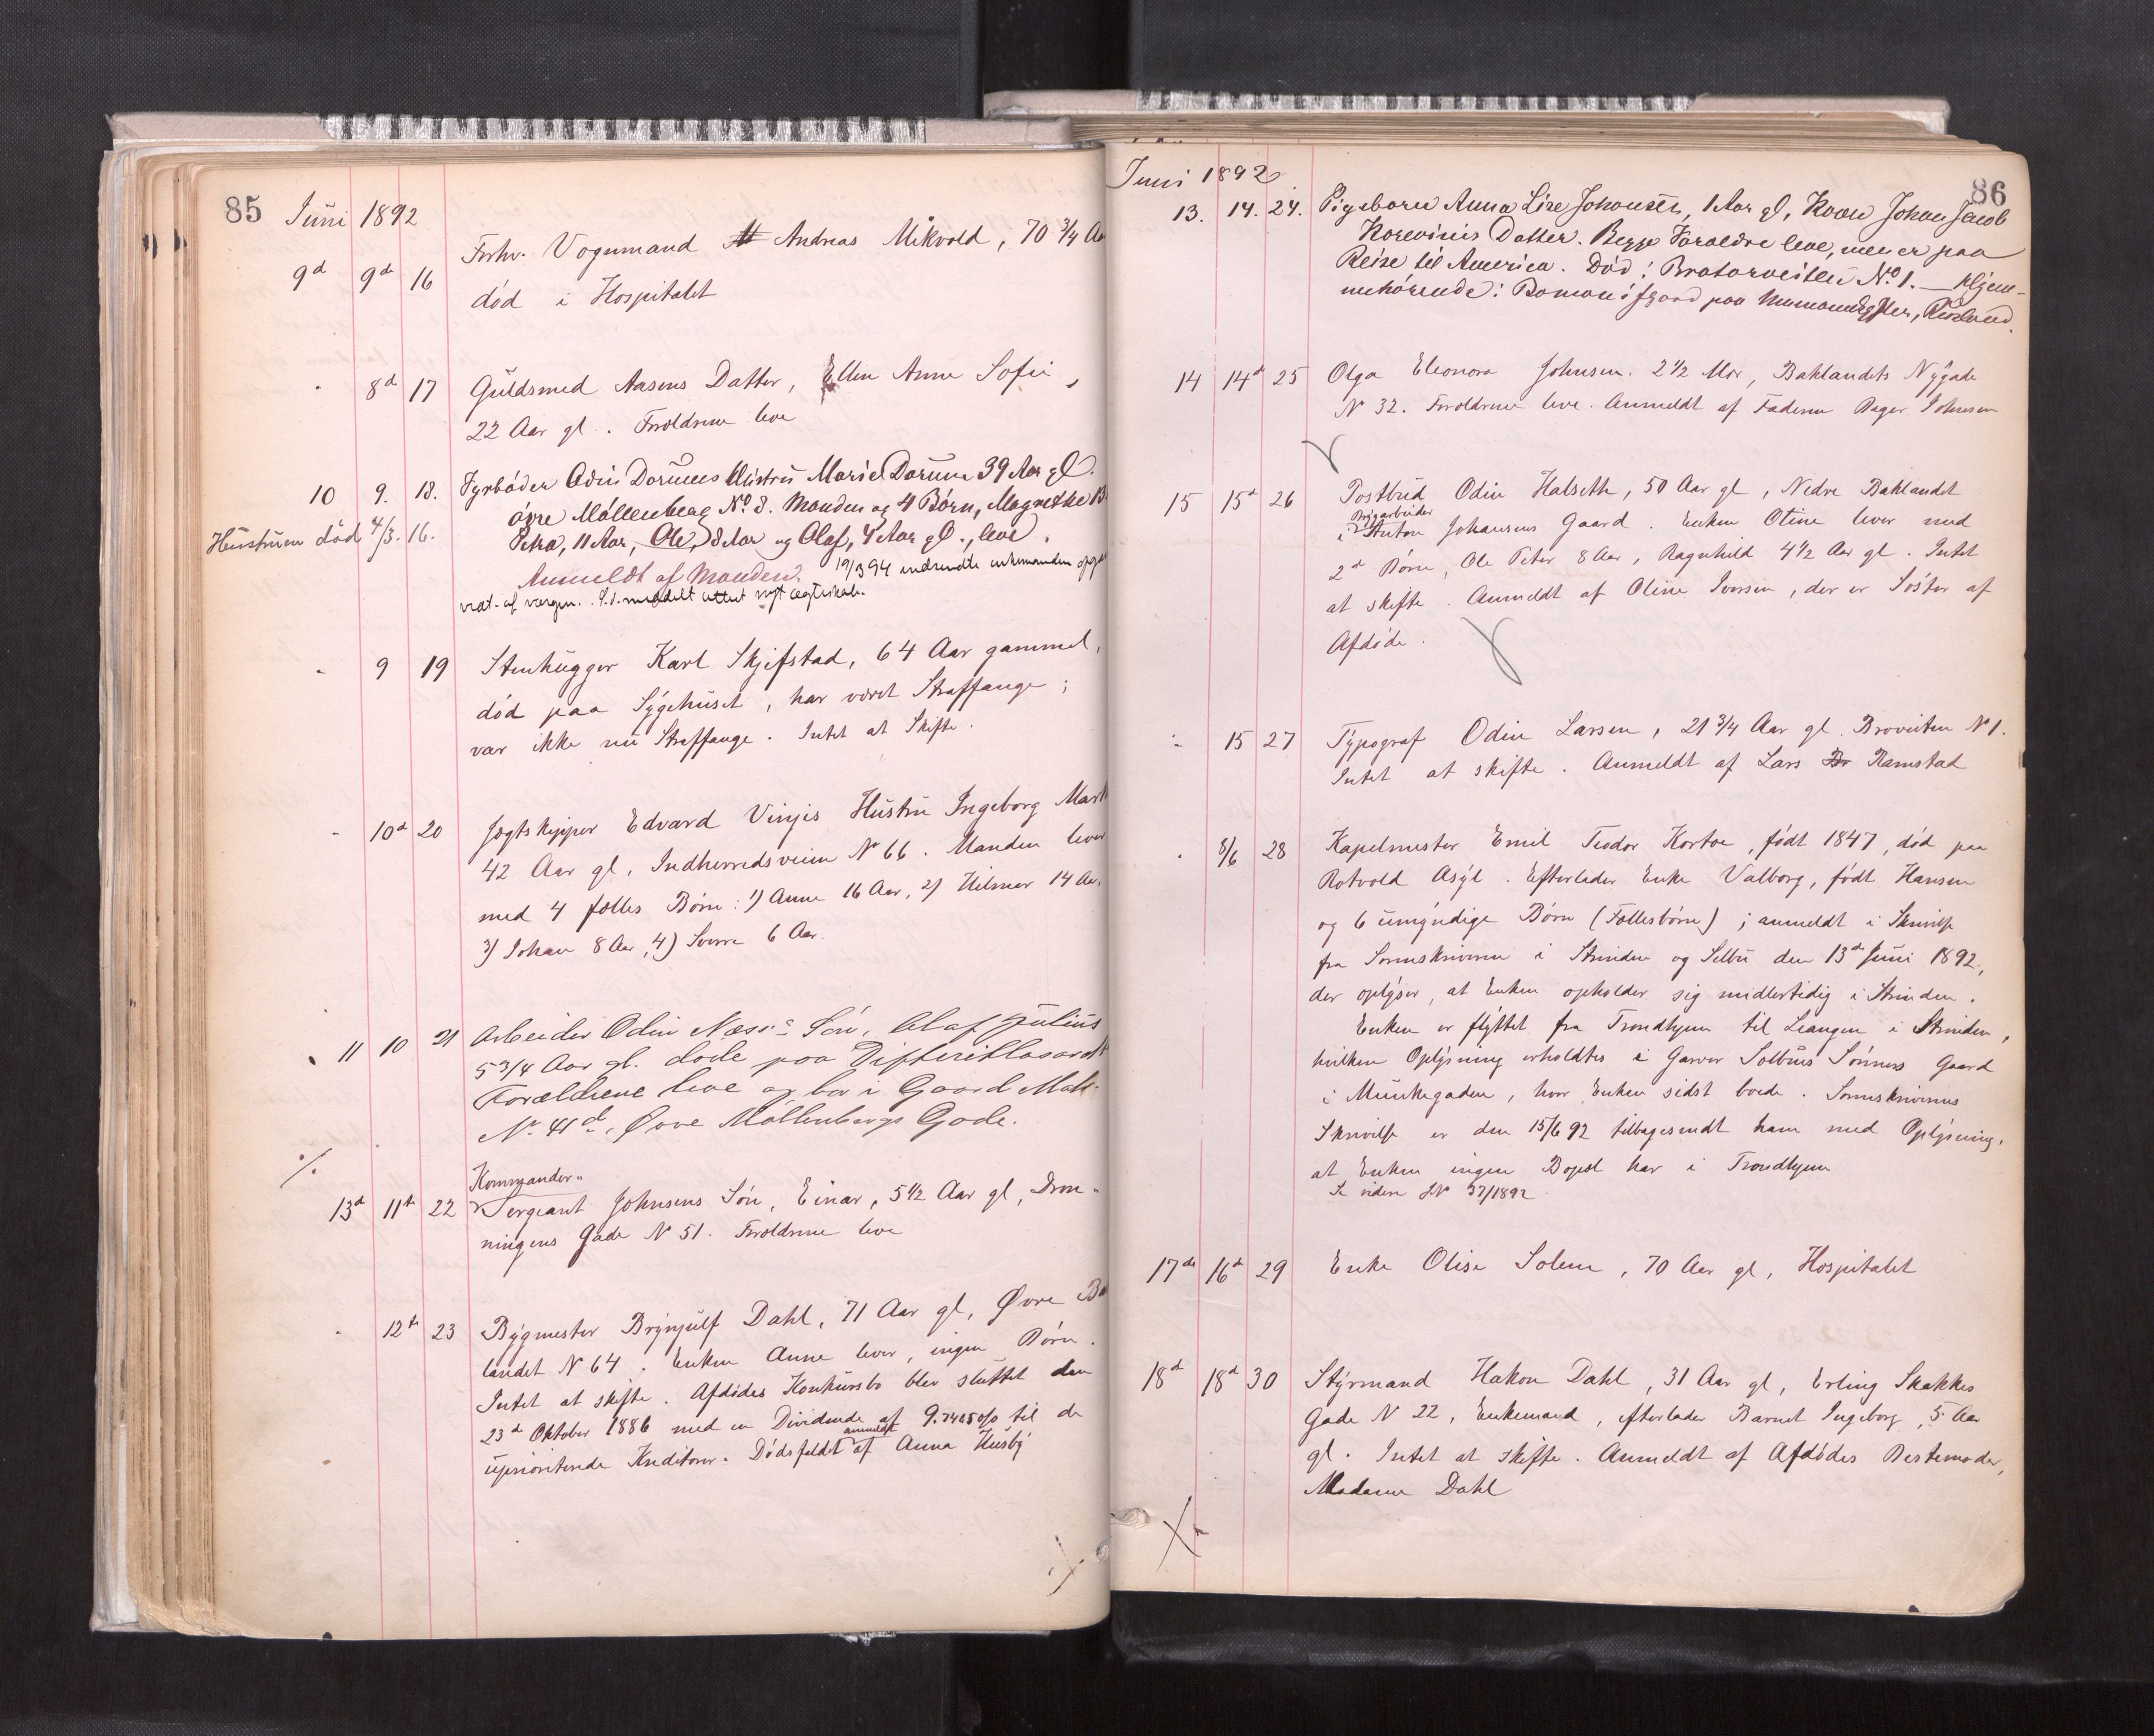 85 Juni 1892
Forhv. Vognmand Andreas Mikvold, 70 3/4 Aa
9d 9de 16
død i Hospitalet
" 8d 17 Guldsmed Aasens Datter, Ellen Anne Sofie,
22 Aar gl. Forældrene leve
10 9. 18. Fyrbøder Odin Dorums Hustru Marie Dorum 39 Aar gl.
øvre Møllenberg No 8. Manden og 4 Børn, Magnethe 13
Hustruen død 4/3. 16. Petra, 11 Aar, Ole, 8 Aar og Olaf, 4 Aar gl., leve.
Anmeldt af Manden. 19/3 94 indsendte enkemanden
af vergen. S.d. meddelt attest nyt ægteskab.
" 9 19 Stenhugger Karl Skjefstad, 64 Aar gammel,
død paa Sygehuset, har været Straffange;
var ikke nu Straffange. Intet at Skifte.
" 10d 20 Jægtskipper Edvard Vinjes Hustru Ingeborg Marth
42 Aar gl, Indherredsveien No 66. Manden lever
med 4 fælles Børn: 1) Anne 16 Aar, 2) Hilmar 14 Aar,
3) Johan 8 Aar, 4) Sverre 6 Aar.
11 10 21 Arbeider Odin Næss's Søn, Olaf Julius
5 3/4 Aar gl. døde paa Difteritlasarett
Forældrene leve og bor i Gaard Matr.
No 41d, Øvre Møllenbergs Gade.
%
Kommander-
13d 11te 22 Sergeant Johnsens Søn, Einar, 5 1/2 Aar gl, Dron-
ningens Gade No 51. Forældrene leve
" 12te 23 Bygmester Brynjulf Dahl, 71 Aar gl, Øvre Ba
landet No 64. Enken Anne lever, ingen Børn.
Intet at skifte. Afdødes Konkursbo blev sluttet den
23d Oktober 1886 med en Dividende af 9.7465 o/o til de
anmeldt
uprioriterede Kreditorer. Dødsfaldt af Anna Husby
Juni 1892 86
13. 14. 24. Pigebarn Anna Lise Johansen, 1 Aar gl, Kvæn Johan Jacob
Datter. Begge Foræeldre leve, men er paa
Reise til America. Død: Bratørveiten No 1. – Hjem-
mehørende: paa
14 14d 25 Olga Eleonora Johnsen. 2 1/2 Mdr, Baklandets Nygade
No 32. Forældrene leve. Anmeldt af Faderen Bager Johnsen
15 15d 26 Postbud Odin Halseth, 50 Aar gl, Nedre Baklandet
Brygarbeider
i Anton Johansens Gaard. Enken Oline lever med
2d Børn, Ole Peter 8 Aar, Ragnhild 4 1/2 Aar gl. Intet
at skifte. Anmeldt af Oline Iversen, der er Søster af
Afdøde.
" 15 27 Typograf Odin Larsen, 21 3/4 Aar gl. Broveiten No 1.
Intet at skifte. Anmeldt af Lars Ramstad
" 8/6 28 Kapelmester Emil Teodor Kortoe, født 1847, død paa
Rotvold Asyl. Efterlader Enke Valborg, født Hansen
og 6 umyndige Børn (Fællesbørn); anmeldt i Skrivelse
fra Sorenskriveren i Strinden og Selbu den 13de Juni 1892,
der oplyser, at Enken opholder sig midlertidig i Strinden.
Enken er flyttet fra Trondhjem til Leangen i Strinden,
hvilken Oplysning erholdtes i Garver Solbus Sønners Gaard
i Munkegaden, hvor Enken sidst boede. Sorenskriverens
Skrivelse er den 15/6 92 tilbagesendt ham med Oplysning,
at Enken ingen Bopæl har i Trondhjem
Se videre LN 37/1892
17de 16d 29 Enke Olise Solem, 70 Aar gl, Hospitalet
18d 18d 30 Styrmand Hakon Dahl, 31 Aar gl, Erling Skakkes
Gade No 22, Enkemand, efterlader Barnet Ingeborg, 5 Aar
gl. Intet at skifte. Anmeldt af Afdødes Bestemoder,
Madame Dahl